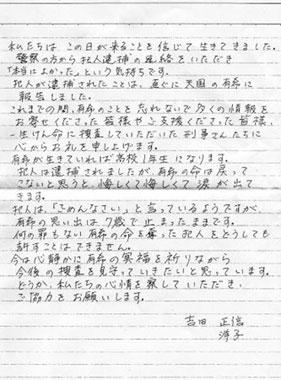 私たちは この日が来ることを信じて生きてきました。
警察の方から犯人逮捕の連絡をいただき
「本当によかった」という気持ちです。
犯人が逮捕されたことは、直ぐに天国の有希に
報告しました。
これまでの間、有希のことを忘れないで多くの情報を
お寄せくださった皆様やご支援くださった皆様、
一生けん命に捜査していただいた刑事さんたちに
心からお礼を申し上げます。
有希が生きていれば高校1年生になります。
犯人は逮捕されましたが、有希の命は戻って
こないと思うと、悔しくて悔しくて涙が出て
きます。
犯人は、「ごめんなさい」と言っているようですが、
有希の思い出は7歳で止まったままです。
何の罪もない有希の命を奪った犯人をどうしても
許すことはできません。
今は心静かに有希の冥福を祈りながら
今後の捜査を見守っていきたいと思っています。
どうか、私たちの心情を察していただき、
ご協力をお願いします。
吉田 正信
洋子